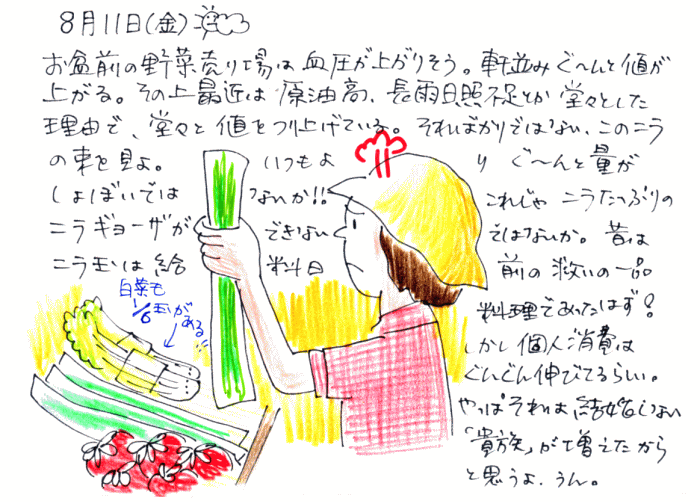 8月11日(金)
お盆前の野菜売り場は血圧が上がりそう。軒並みぐ〜んと値が
上がる。その上最近は原油高、長雨日照不足とか堂々とした
理由で、堂々と値をつり上げている。そればかりではない、このニラ
の束を見よ。いつもより ぐ〜んと量が
しょぼいではないか!! これじゃ ニラたっぷりの
ニラギョーザができないではないか。昔は
ニラ玉は給料日前の救いの一品
料理であったはず!
しかし個人消費は
ぐんぐん伸びてるらしい。
やっぱそれは結婚しない
「貴族」が増えたから
と思うよ、うん。
白菜も
1/6玉が
ある!!